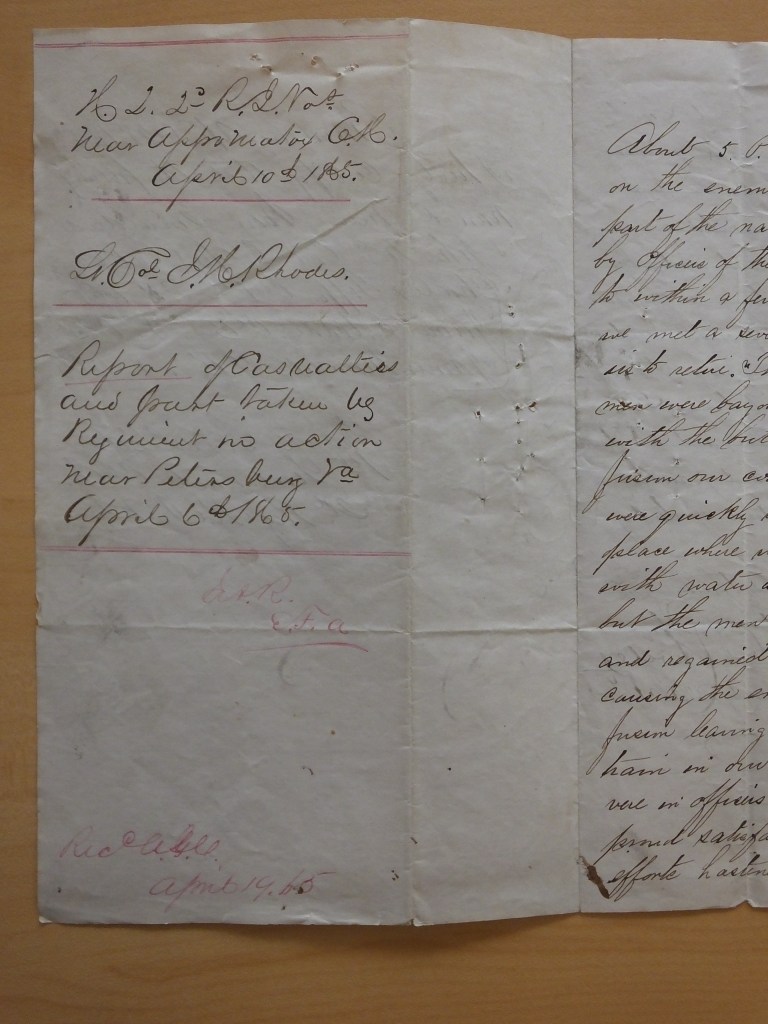 H. Q. 2d R. I. Vols
Near Appomatox C. H.
April 10th 1865.
Lt. Col E. H. Rhodes.
Report of Casualties
and part taken by
Regiment in action
near Petersburg Va
April 6th 1865.
E. F. a
Recd A. G. O.
April 19. 65
About 5. P.
on the enem
part of the na
by Officers of the
to within a few
we met a seve
us to retire. In
men were bayo
with the but
fusion our co
were quickly
place where
with water a
but the men
and regained
causing the en
fusion leaving
train in our
vere in officers
pmed satisfa
efforts hasten